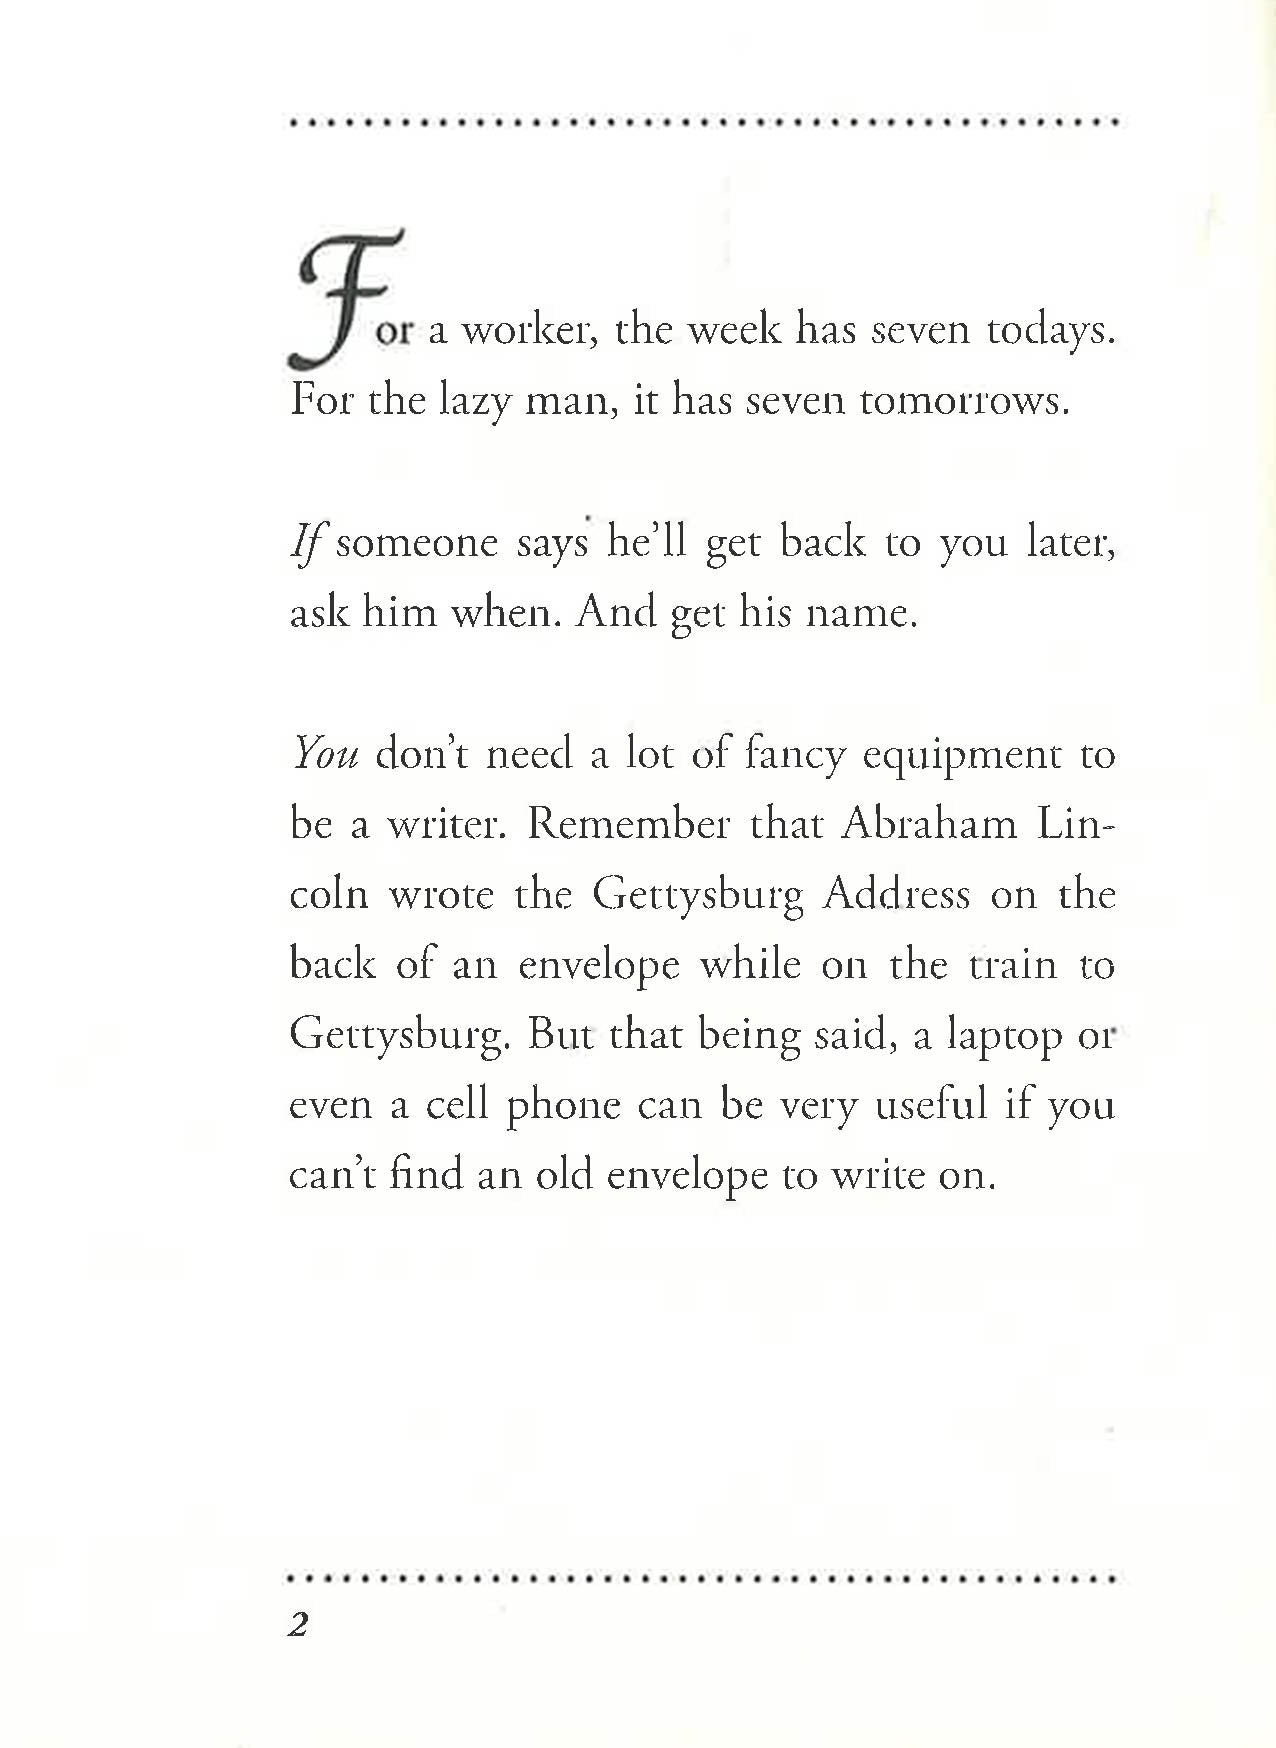 For a worker, the week has seven todays.
For the lazy man, it has seven tomorrows.
If someone says he'll get back to you later,
ask him when. And get his name.
You don't need a lot of fancy equipment to
be a writer. Remember that Abraham Lin-
coln wrote the Gettysburg Address on the
back of an envelope while on the train to
Gettysburg. But that being said, a laptop or
even a cell phone can be very useful if you
can't find an old envelope to write on.
2